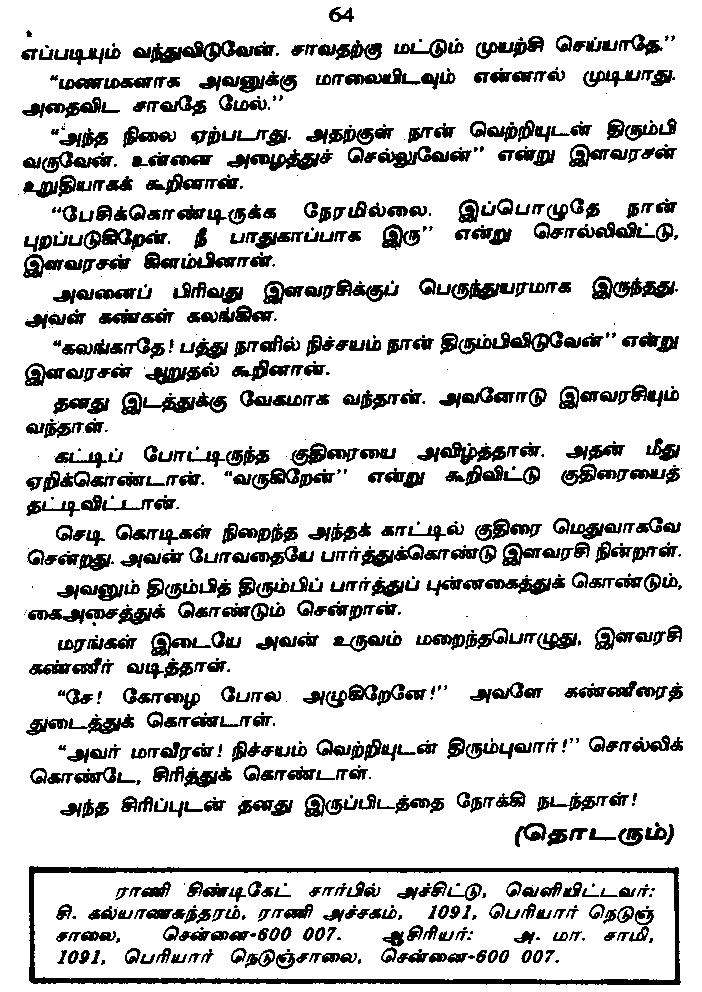 64
எப்படியும் வந்துவிடுவேன். சாவதற்கு மட்டும் முயற்சி செய்யாதே.”
“மணமகளாக அவனுக்கு மாலையிடவும் என்னால் முடியாது.
அதைவிட சாவதே மேல்.”
“அந்த நிலை ஏற்படாது. அதற்குள் நான் வெற்றியுடன் திரும்பி
வருவேன். உன்னை அழைத்துச் செல்லுவேன்” என்று இளவரசன்
உறுதியாகக் கூறினான்.
“பேசிக்கொண்டிருக்க நேரமில்லை. இப்பொழுதே நான்
புறப்படுகிறேன். நீ பாதுகாப்பாக இரு” என்று சொல்லிவிட்டு,
இளவரசன் கிளம்பினான்.
அவனைப் பிரிவது இளவரசிக்குப் பெருந்துயரமாக இருந்தது.
அவள் கண்கள் கலங்கின.
“கலங்காதே! பத்து நாளில் நிச்சயம் நான் திரும்பிவிடுவேன்” என்று
இளவரசன் ஆறுதல் கூறினான்.
தனது இடத்துக்கு வேகமாக வந்தான். அவனோடு இளவரசியும்
வந்தாள்.
கட்டிப் போட்டிருந்த குதிரையை அவிழ்த்தான். அதன் மீது
ஏறிக்கொண்டான். “வருகிறேன்” என்று கூறிவிட்டு குதிரையைத்
தட்டிவிட்டான்.
செடி கொடிகள் நிறைந்த அந்தக் காட்டில் குதிரை மெதுவாகவே
சென்றது. அவன் போவதையே பார்த்துக்கொண்டு இளவரசி நின்றாள்.
அவனும் திரும்பித் திரும்பிப் பார்த்துப் புன்னகைத்துக் கொண்டும்,
கைஅசைத்துக் கொண்டும் சென்றான்.
மரங்கள் இடையே அவன் உருவம் மறைந்தபொழுது, இளவரசி
கண்ணீர் வடித்தாள்.
“சே! கோழை போல அழுகிறேனே!” அவளே கண்ணீரைத்
துடைத்துக் கொண்டாள்.
“அவர் மாவீரன்! நிச்சயம் வெற்றியுடன் திரும்புவார்!” சொல்லிக்
கொண்டே, சிரித்துக் கொண்டாள்.
அந்த சிரிப்புடன் தனது இருப்பிடத்தை நோக்கி நடந்தாள்!
(தொடரும்)
ராணி சிண்டிகேட் சார்பில் அச்சிட்டு, வெளியிட்டவர்:
சி. கல்யாணசுந்தரம், ராணி அச்சகம், 1091, பெரியார் நெடுஞ்
சாலை, சென்னை-600 007. ஆசிரியர்: அ. மா. சாமி,
1091, பெரியார் நெடுஞ்சாலை, சென்னை-600 007.